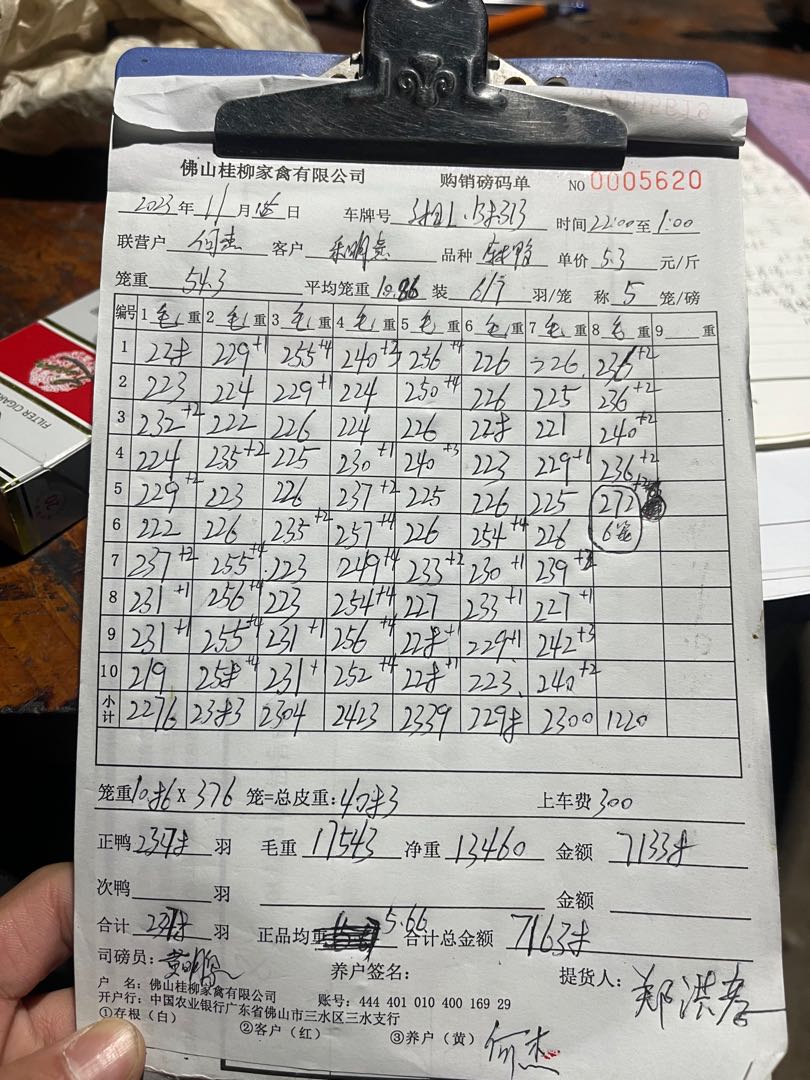 0005619
佛山桂柳家禽有限公司 购销磅码单 NO 0005620
2023年11月18日 车牌号 时间22:00至1:00
联营户 何杰 客户 品种 单价 5.3 元/斤
笼重 54.3 平均笼重 10.86 装 6/7 羽/笼 称 5 笼/磅
编号 1毛重 2毛重 3毛重 4毛重 5毛重 6毛重 7毛重 8毛重 9 重
1 228 229+1 255+4 240+3 256+4 226 226 236+2
2 223 224 229+1 224 250+4 226 225 236+2
3 232+2 222 226 224 226 228 221 240+2
4 224 235+2 225 230+1 240+3 223 229+1 236+2
5 229+2 223 226 237+2 225 226 225 272+2
6 222 226 235+2 257+4 226 254+4 226 6笼
7 237+2 255+4 223 249+4 233+2 230+1 239+3
8 231+1 256+4 223 254+4 227 233+1 227+1
9 231+1 255+4 231+1 256+4 228+1 229+1 242+3
10 219 258+4 231+1 252+4 228+1 223 240+2
小计 2276 2383 2304 2423 2339 2298 2300 1220
笼重10.86 X 376 笼=总皮重:4083 上车费 300
正鸭 2378 羽 毛重 17543 净重 13460 金额 71338
次鸭 羽 金额
合计 2378 羽 正品均重 5.66 合计总金额 71638
司磅员: 养户签名: 提货人: 郑洪彦
户 名: 佛山桂柳家禽有限公司 账号: 444 401 010 400 169 29
开户行: 中国农业银行广东省佛山市三水区三水支行
①存根（白） ②客户（红） ③养户（黄） 何杰
FILTER CIGAR